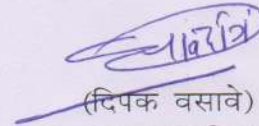 (दिपक वसावे)